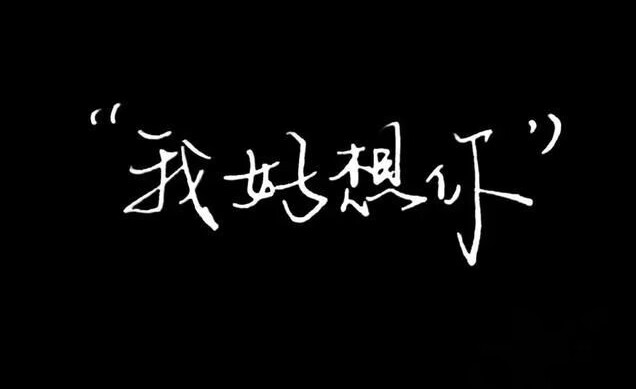 “我好想你”